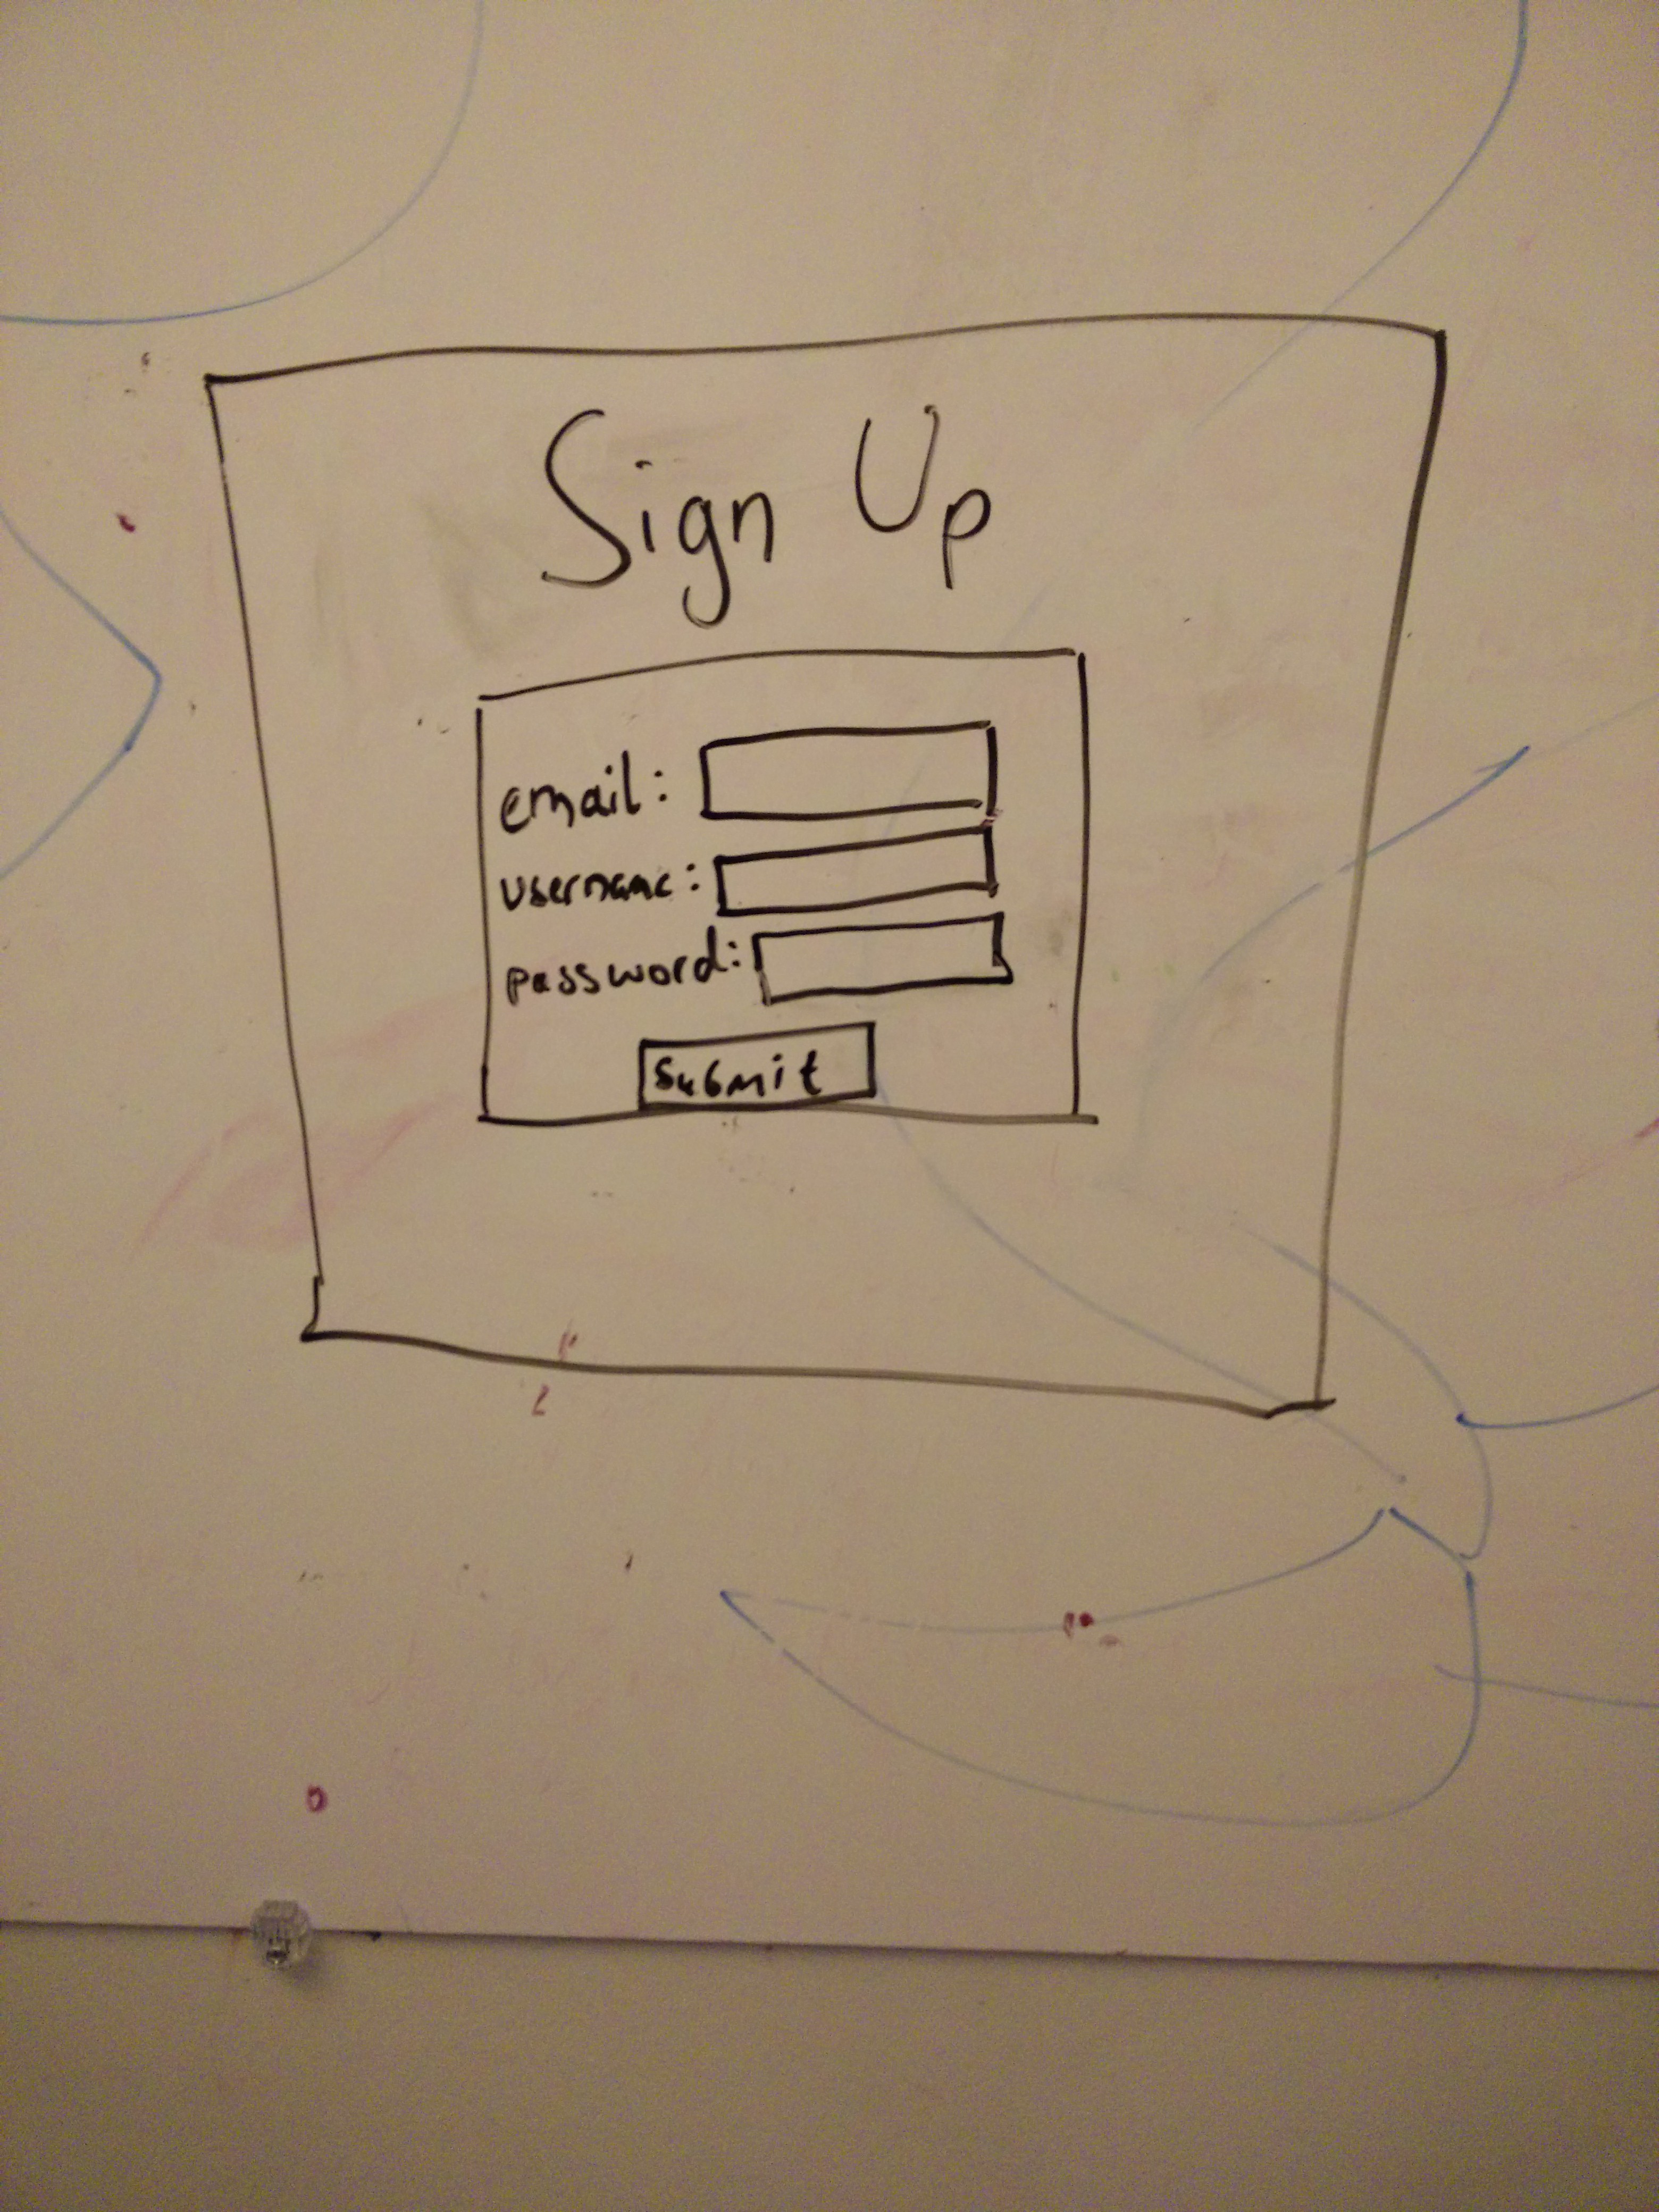 Sign Up
email:
username:
password:
Submit